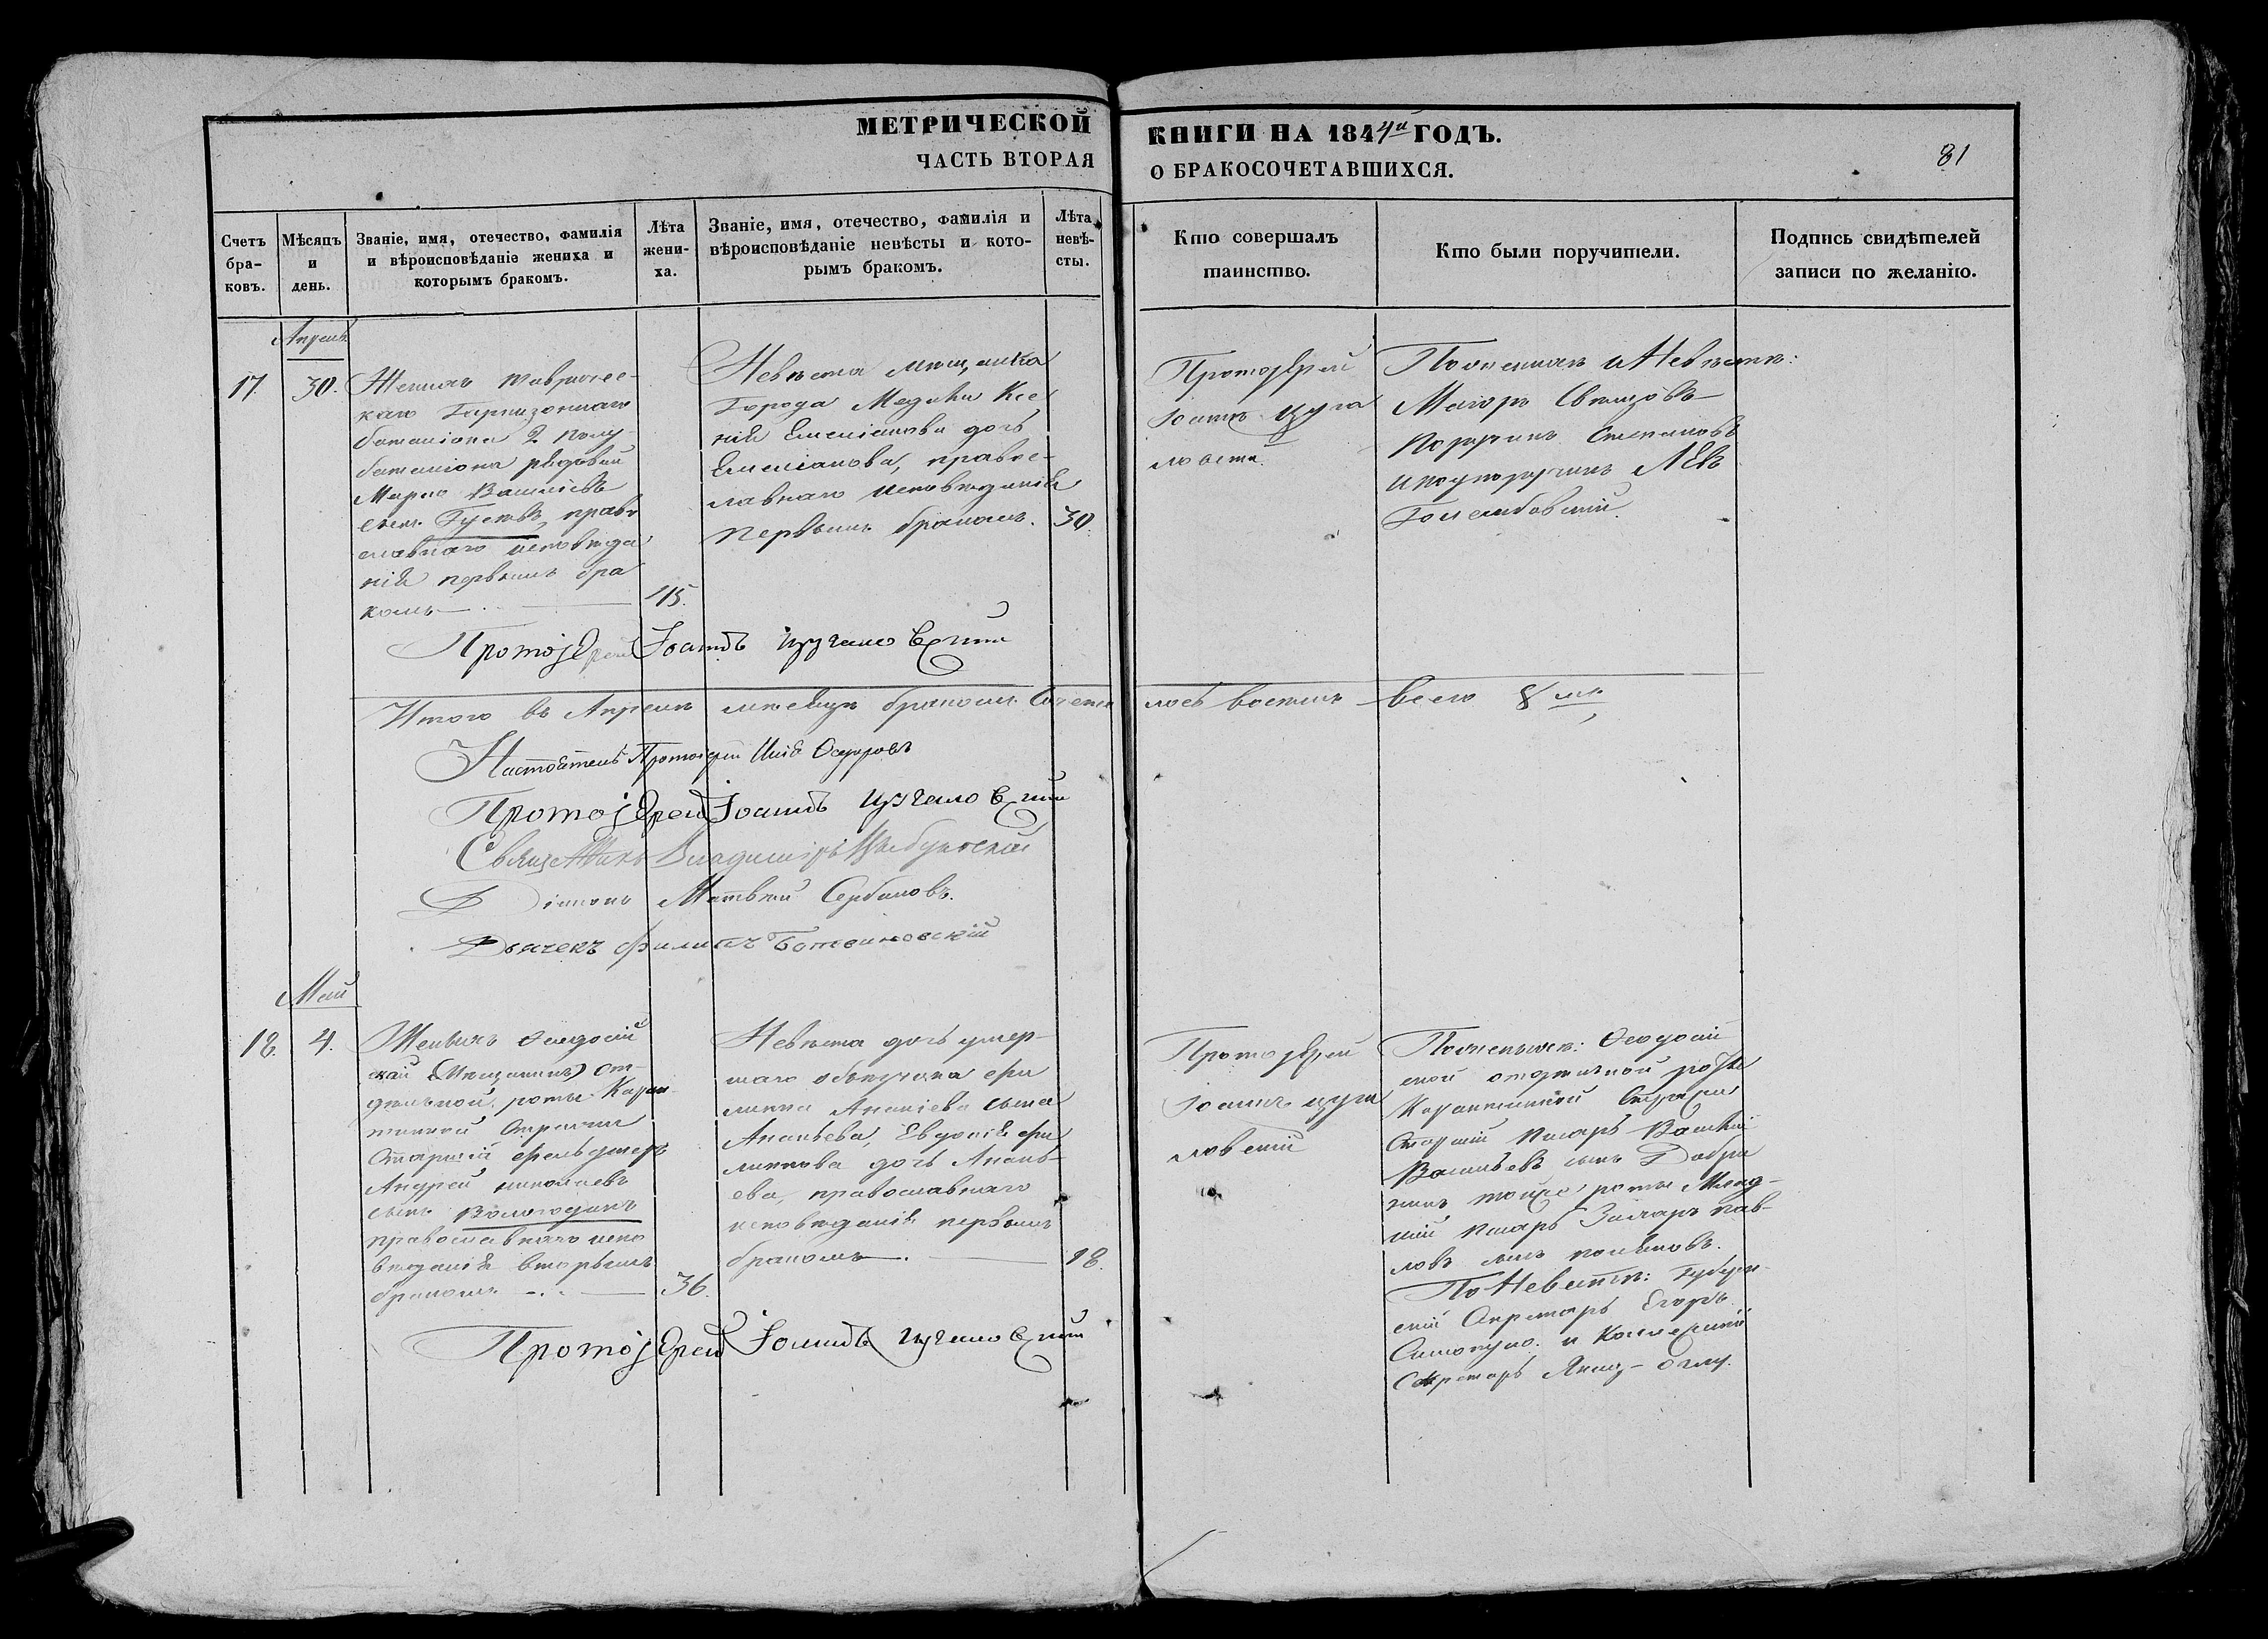 МЕТРИЧЕСКОЙ
ЧАСТЬ ВТОРАЯ
КНИГИ НА 1844й ГОДЪ.
О БРАКОСОЧЕТАВШИХСЯ.
81
Счетъ бра-
ковъ.
Мѣсяцъ
и
день.
Званіе, имя, отечество, фамилія
и вѣроисповѣданіе жениха и
которымъ бракомъ.
Лѣта
жени-
ха.
Званіе, имя, отечество, фамилія и
вѣроисповѣданіе невѣсты и кото-
рымъ бракомъ.
Лѣта
невѣ-
сты.
Кто совершалъ
таинство.
Кто были поручители.
Подпись свидѣтелей
записи по желанію.
Апрель
17.
30.
Женихъ Тавричес-
каго Гарнизоннаго
баталіона 2 полу-
баталіона рядовый
Марко Василіевъ
сынъ Гусевъ, право
славнаго исповѣда
нія первымъ бра
комъ
45.
Невѣста мѣщанка
Города Ксе
нія Емеліанова дочь
Емеліанова, правос-
лавнаго исповѣданія
первымъ бракомъ.
30.
Протоіерей
Іоаннъ
По Женихѣ и Невѣстѣ:
Маіоръ
Поручикъ Степановъ
и подпоручикъ Левъ
Протоіерей Іоаннъ
Итого въ Апрелѣ месяцѣ бракомъ сочета
лось восемь всего 8
Настоятель Протоіерей Илія
Протоіерей Іоаннъ
Священникъ Владиміръ
Діаконъ Матвѣй Сербиновъ.
Дьячекъ Филипъ
Май
18.
4.
Женихъ Феодосій
ской (Мѣщанинъ) От-
дѣльной роты Каран-
тинной Стражи
Старшій фельдшеръ
Андрей Николаевъ
сынъ Вологодинъ
православнаго испо
вѣданія вторымъ
бракомъ
36.
Невѣста дочь умер-
шаго объѣзчика Фи
липпа Ананіева сына
Ананьева, Евдокія Фи
липпова дочь Анань-
ева, православнаго
исповѣданія первымъ
бракомъ
18.
Протоіерей
Іоаннъ
По Женихѣ: Феодосій
ской отдѣльной роты
Карантинной Стражи
Старшій писарь Василій
Васильевъ сынъ
той же роты Млад-
шій писарь Захаръ Пав-
ловъ сынъ Поляковъ.
По Невѣстѣ: Губерн-
скій Секретарь Егоръ
и Коллежскій
Секретарь
Протоіерей Іоаннъ